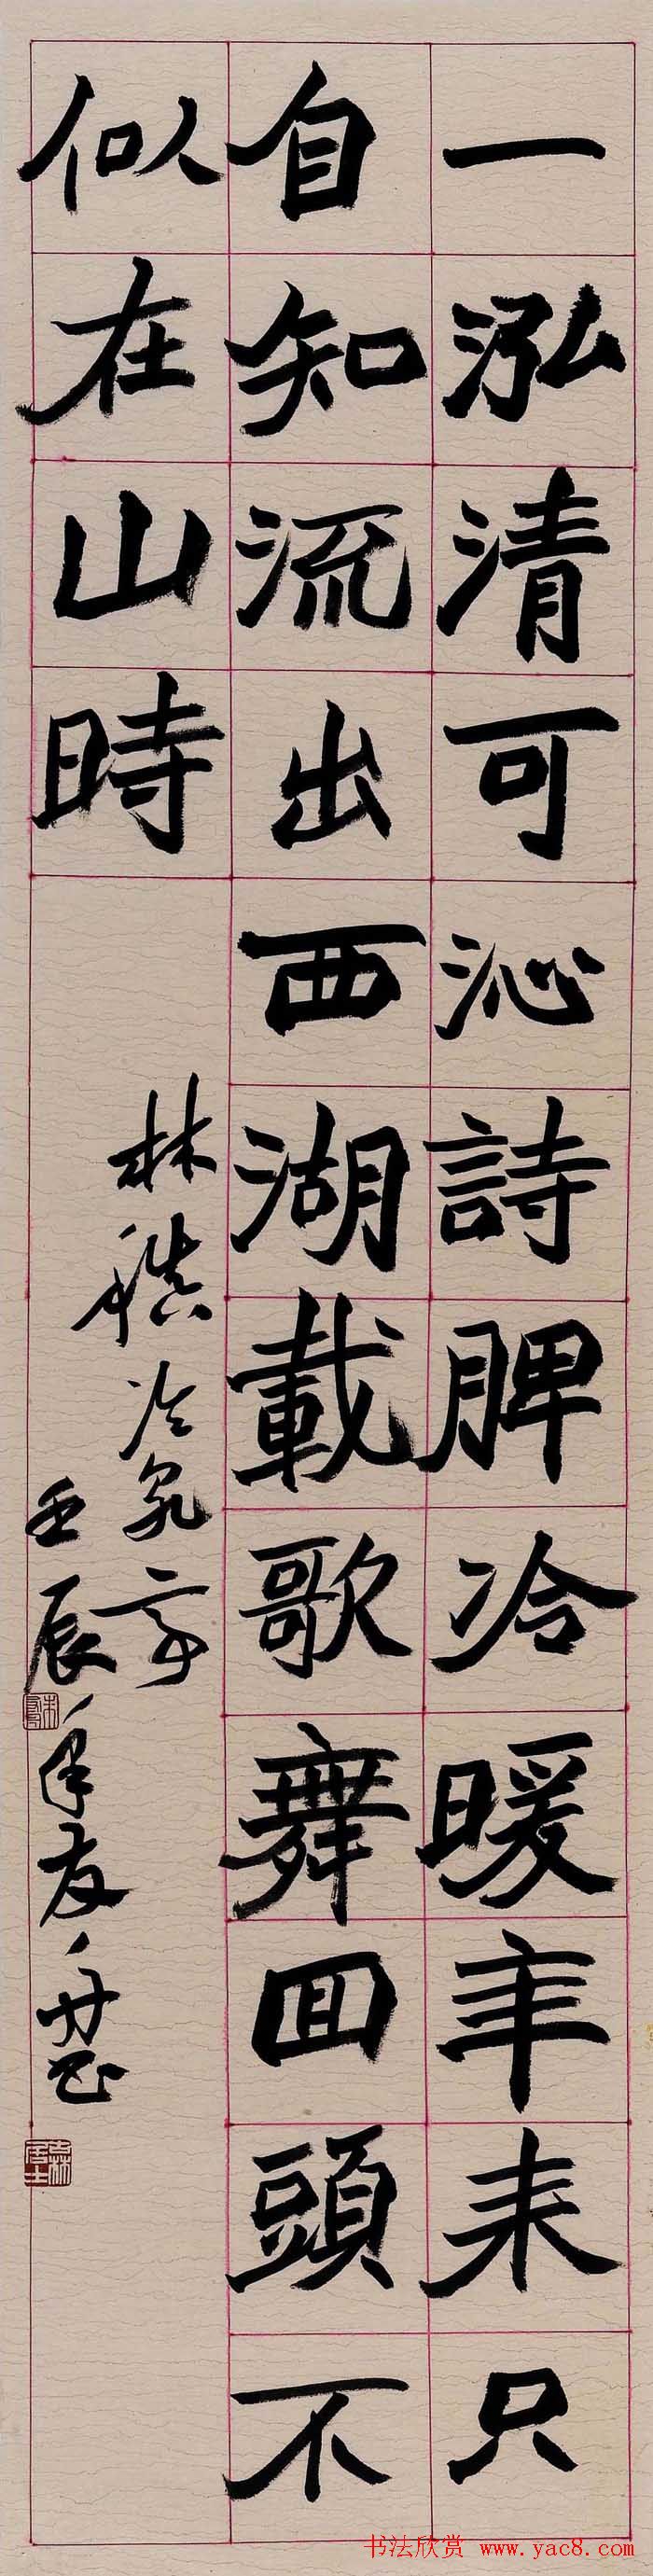 一泓清可沁詩脾冷暖年来只
自知流出西湖載歌舞回頭不
似在山時
林稹冷泉亭
壬辰年友
書法欣赏 www.yac8.com